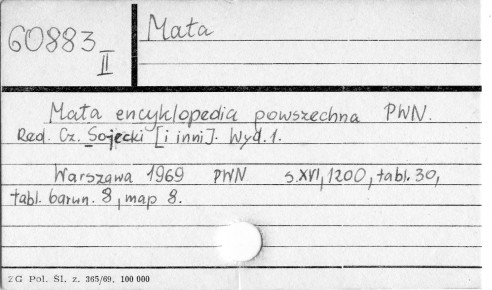 60883
II
Mała
Mała encyklopedia powszechna PWN.
Red. Cz. Sojecki [i inni]. Wyd. 1.
Warszawa 1969 PWN s. XVI, 1200, tabl. 30,
tabl. barwn. 8, map 8.
2 G Pol. Śl. z. 365/69. 100 000